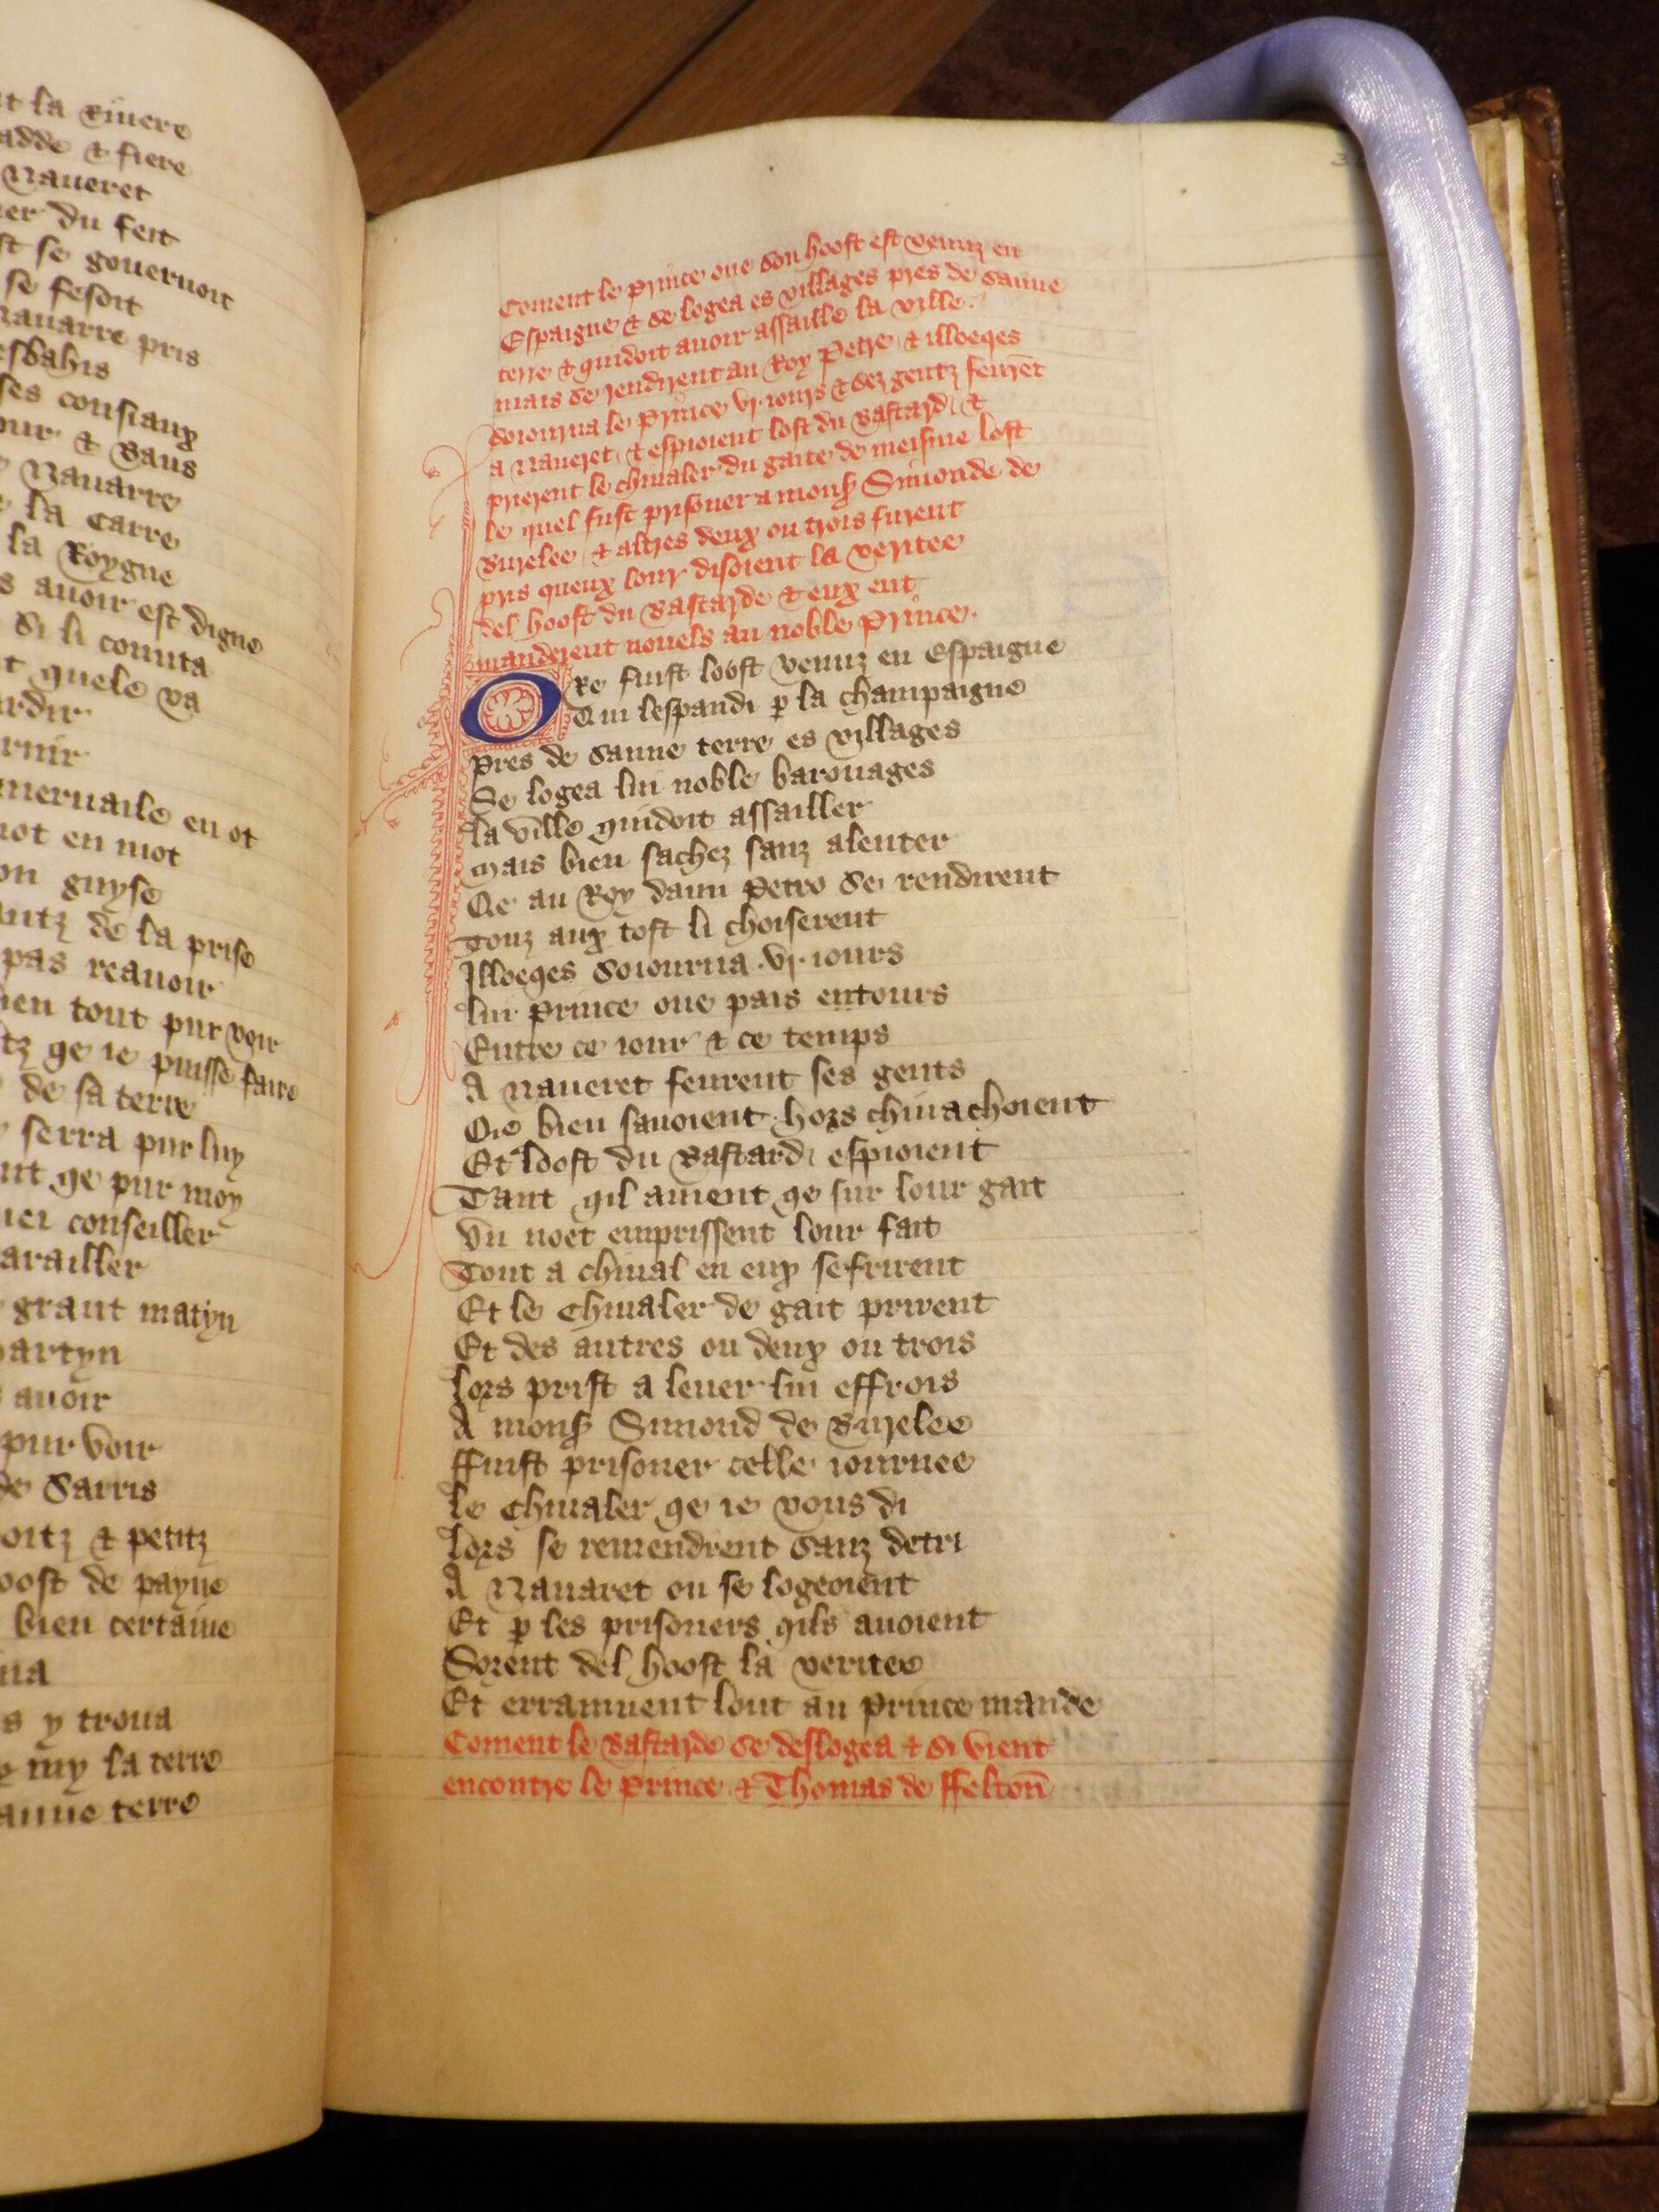 t la Riuere
adde & fiere
Naueret
er du feit
st se gouernoit
se fesoit
Nauarre pris
esbahis
ses consiaux
our & Baus
Nauarre
la Carre
la Roygne
s auoir est digne
Si li connta
t quele va
ardir
rnir
meruaile en ot
mot en mot
on guyse
antz de la prise
pas reauoir
ien tout pur voir
tz qe ie puisse faire
de sa terre
serra pur luy
nt qe pur moy
iei conseiller
arailler
grant matyn
artyn
auoir
pur voir
de Sarris
oitz & petitz
oost de payne
bien certaine
na
s y troua
my la terre
anue terre
Coment le Prince oue son hooft est venuz en
Espaigne & se logea es villages pres de Saune
terre & quidoit auoir assaille la ville
mais se rendirent au Roy Petre & illoeqes
soiourna le Prince vj iours & sez gentz feurēt
a Naueret & espioient lost du Bastard &
prierent le chiualer du gaite de meisme lost
le quel fust prisoner a mons Simonde de
Burelee & altres deux ou trois furent
pris queux lour disoient la veritee
del hoost du Bastarde & eux ent
manderent nouels au noble Prince
Ore fuist loost venuz en Espaigne
Qui lespandi p la champaigne
Pres de Saune terre es villages
Se logea lui noble barouages
la ville quidoit assailler
Mais bien sachez sanz alenter
Qe au Roy dann Petro se rendirent
Touz aux tost li choiserent
Illoeqes soiourna vj iours
lui Prince oue pais entours
Entre ce iour & ce temps
A Naueret feurent ses gents
Qe bien sauoient hors chiuachoient
Et loost du Bastard espioient
Tant qil auient qe sur lour gait
Vn noet emprissent lour fait
Tout a chiual en eux sefrirent
Et le chiualer de gait prirent
Et des autres ou deux ou trois
Lors prist a leuer lui effrois
A mons Simond de Burelee
ffuist prisoner celle iournee
le Chiualer qe ie vous di
Lors se reuiendrent sanz detri
A Nauaret ou se logeoient
Et p les prisoners qils auoient
Sorent del hoost la veritee
Et erraument lont au Prince mande
Coment le Bastarde se deslogea & si vient
encontre le Prince & Thomas de ffeltoñ